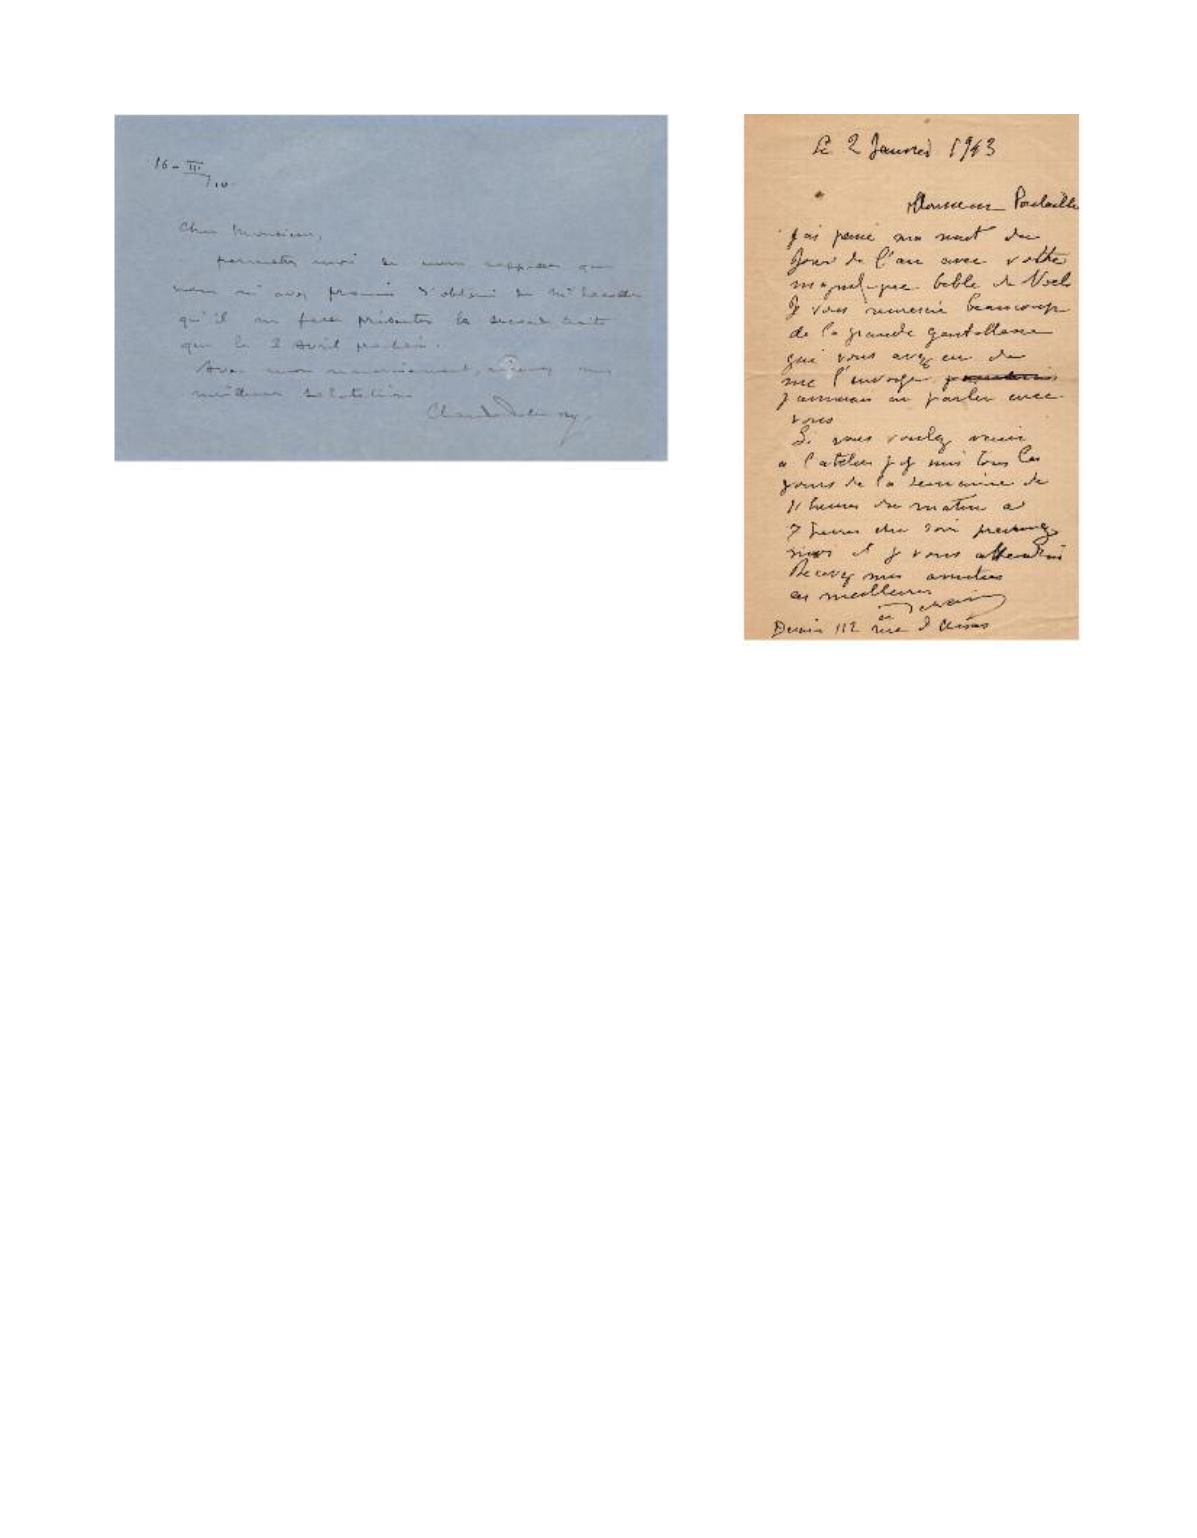 16 - III / 10.
Cher Monsieur,
permettez moi de vous rappeler que
vous m'avez promis d'obtenir de Mr
qu'il ne fasse présenter la seconde traite
que le 2 Avril prochain.
Avec mon remerciement, recevez mes
meilleures salutations
Claude Debussy.
Le 2 Janvier 1943
Monsieur Poulaille
J'ai passé ma nuit du
Jour de l'an avec votre
magnifique bible de Noels
Je vous remercie beaucoup
de la grande gentillesse
que vous avez eu de
me l'envoyer
J'aimerais en parler avec
vous
Si vous voulez venir
a l'atelier j'y suis tous les
jours de la semaine de
heures du matin a
7 heures du soir prevenez
moi et je vous attendrai
Recevez mes amities
les meilleures
a Derain
Derain 112 rue d